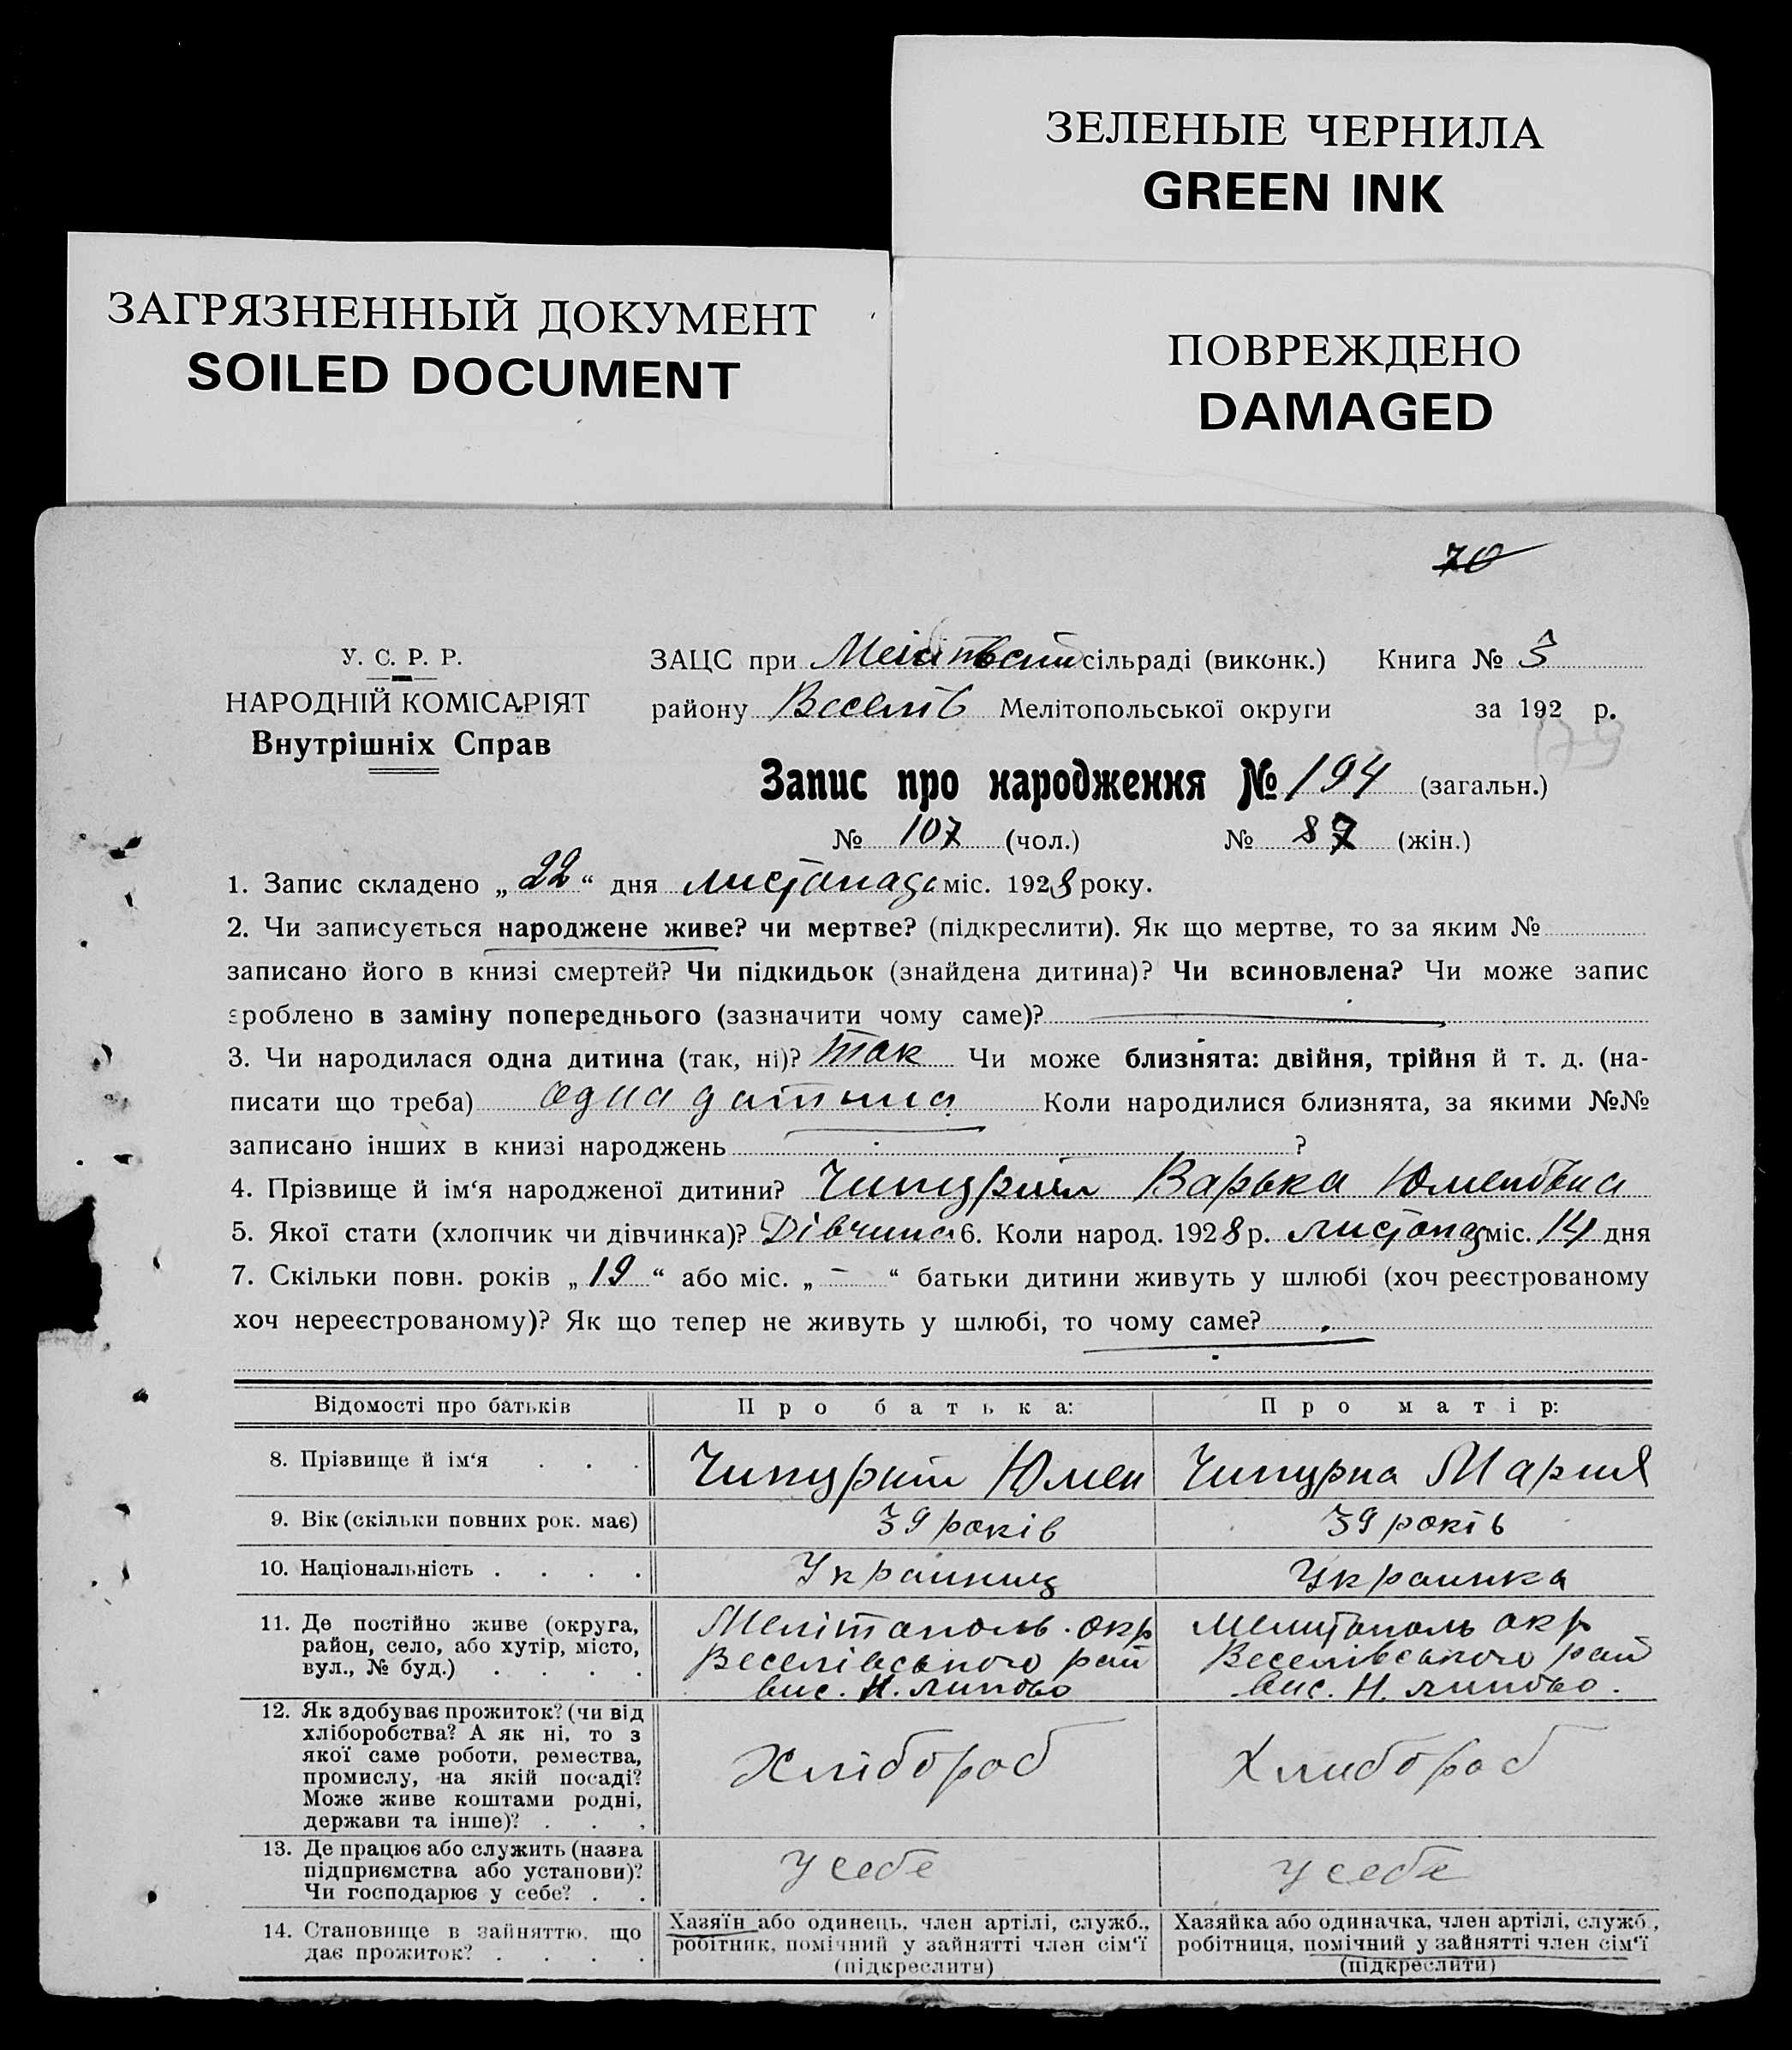 ЗЕЛЕНЫЕ ЧЕРНИЛА
GREEN INK
ЗАГРЯЗНЕННЫЙ ДОКУМЕНТ
SOILED DOCUMENT
ПОВРЕЖДЕНО
DAMAGED
70
У. С. Р. Р.
НАРОДНІЙ КОМІСАРІЯТ
Внутрішніх Справ
ЗАЦС при сільраді (виконк.) Книга № 3
району Веселів Мелітопольської округи за 192 р.
179
Запис про народження № 194 (загальн.)
№ 107 (чол.) № 87 (жін.)
1. Запис складено „ 22 “ дня листопада міс. 1928 року.
2. Чи записується народжене живе? чи мертве? (підкреслити). Як що мертве, то за яким №
записано його в книзі смертей? Чи підкидьок (знайдена дитина)? Чи всиновлена? Чи може запис
зроблено в заміну попереднього (зазначити чому саме)?
3. Чи народилася одна дитина (так, ні)? так Чи може близнята: двійня, трійня й т. д. (на-
писати що треба) одна дитина Коли народилися близнята, за якими №№
записано інших в книзі народжень ?
4. Прізвище й ім‘я народженої дитини? Чипурній Варька Юменовна
5. Якої стати (хлопчик чи дівчинка)? Дівчина 6. Коли народ. 1928 р. листопад міс. 14 дня
7. Скільки повн. років „ 19 “ або міс. „ - “ батьки дитини живуть у шлюбі (хоч реєстрованому
хоч нереєстрованому)? Як що тепер не живуть у шлюбі, то чому саме?
Відомості про батьків Про батька: Про матір:
8. Прізвище й ім‘я . . . Чипурний Юмен Чипурна Мария
9. Вік (скільки повних рок. має) 39 років 39 років
10. Національність . . . . Украинец Украинка
11. Де постійно живе (округа, район, село, або хутір, місто, вул., № буд.) . . . .
Мелітополь. окр
Веселівського рай
вис. Н. липово
Мелитополь окр
Веселівського рай
вис. Н. липово.
12. Як здобуває прожиток? (чи від хліборобства? А як ні, то з якої саме роботи, ремества, промислу, на якій посаді? Може живе коштами родні, держави та інше)? . . .
Хлібороб Хлибороб
13. Де працює або служить (назва підприємства або установи)? Чи господарює у себе? . .
у себе у себе
14. Становище в зайняттю, що дає прожиток? . . . .
Хазяїн або одинець, член артілі, служб.,
робітник, помічний у зайнятті член сім‘ї
(підкреслити)
Хазяйка або одиначка, член артілі, служб.,
робітниця, помічний у зайнятті член сім‘ї
(підкреслити)